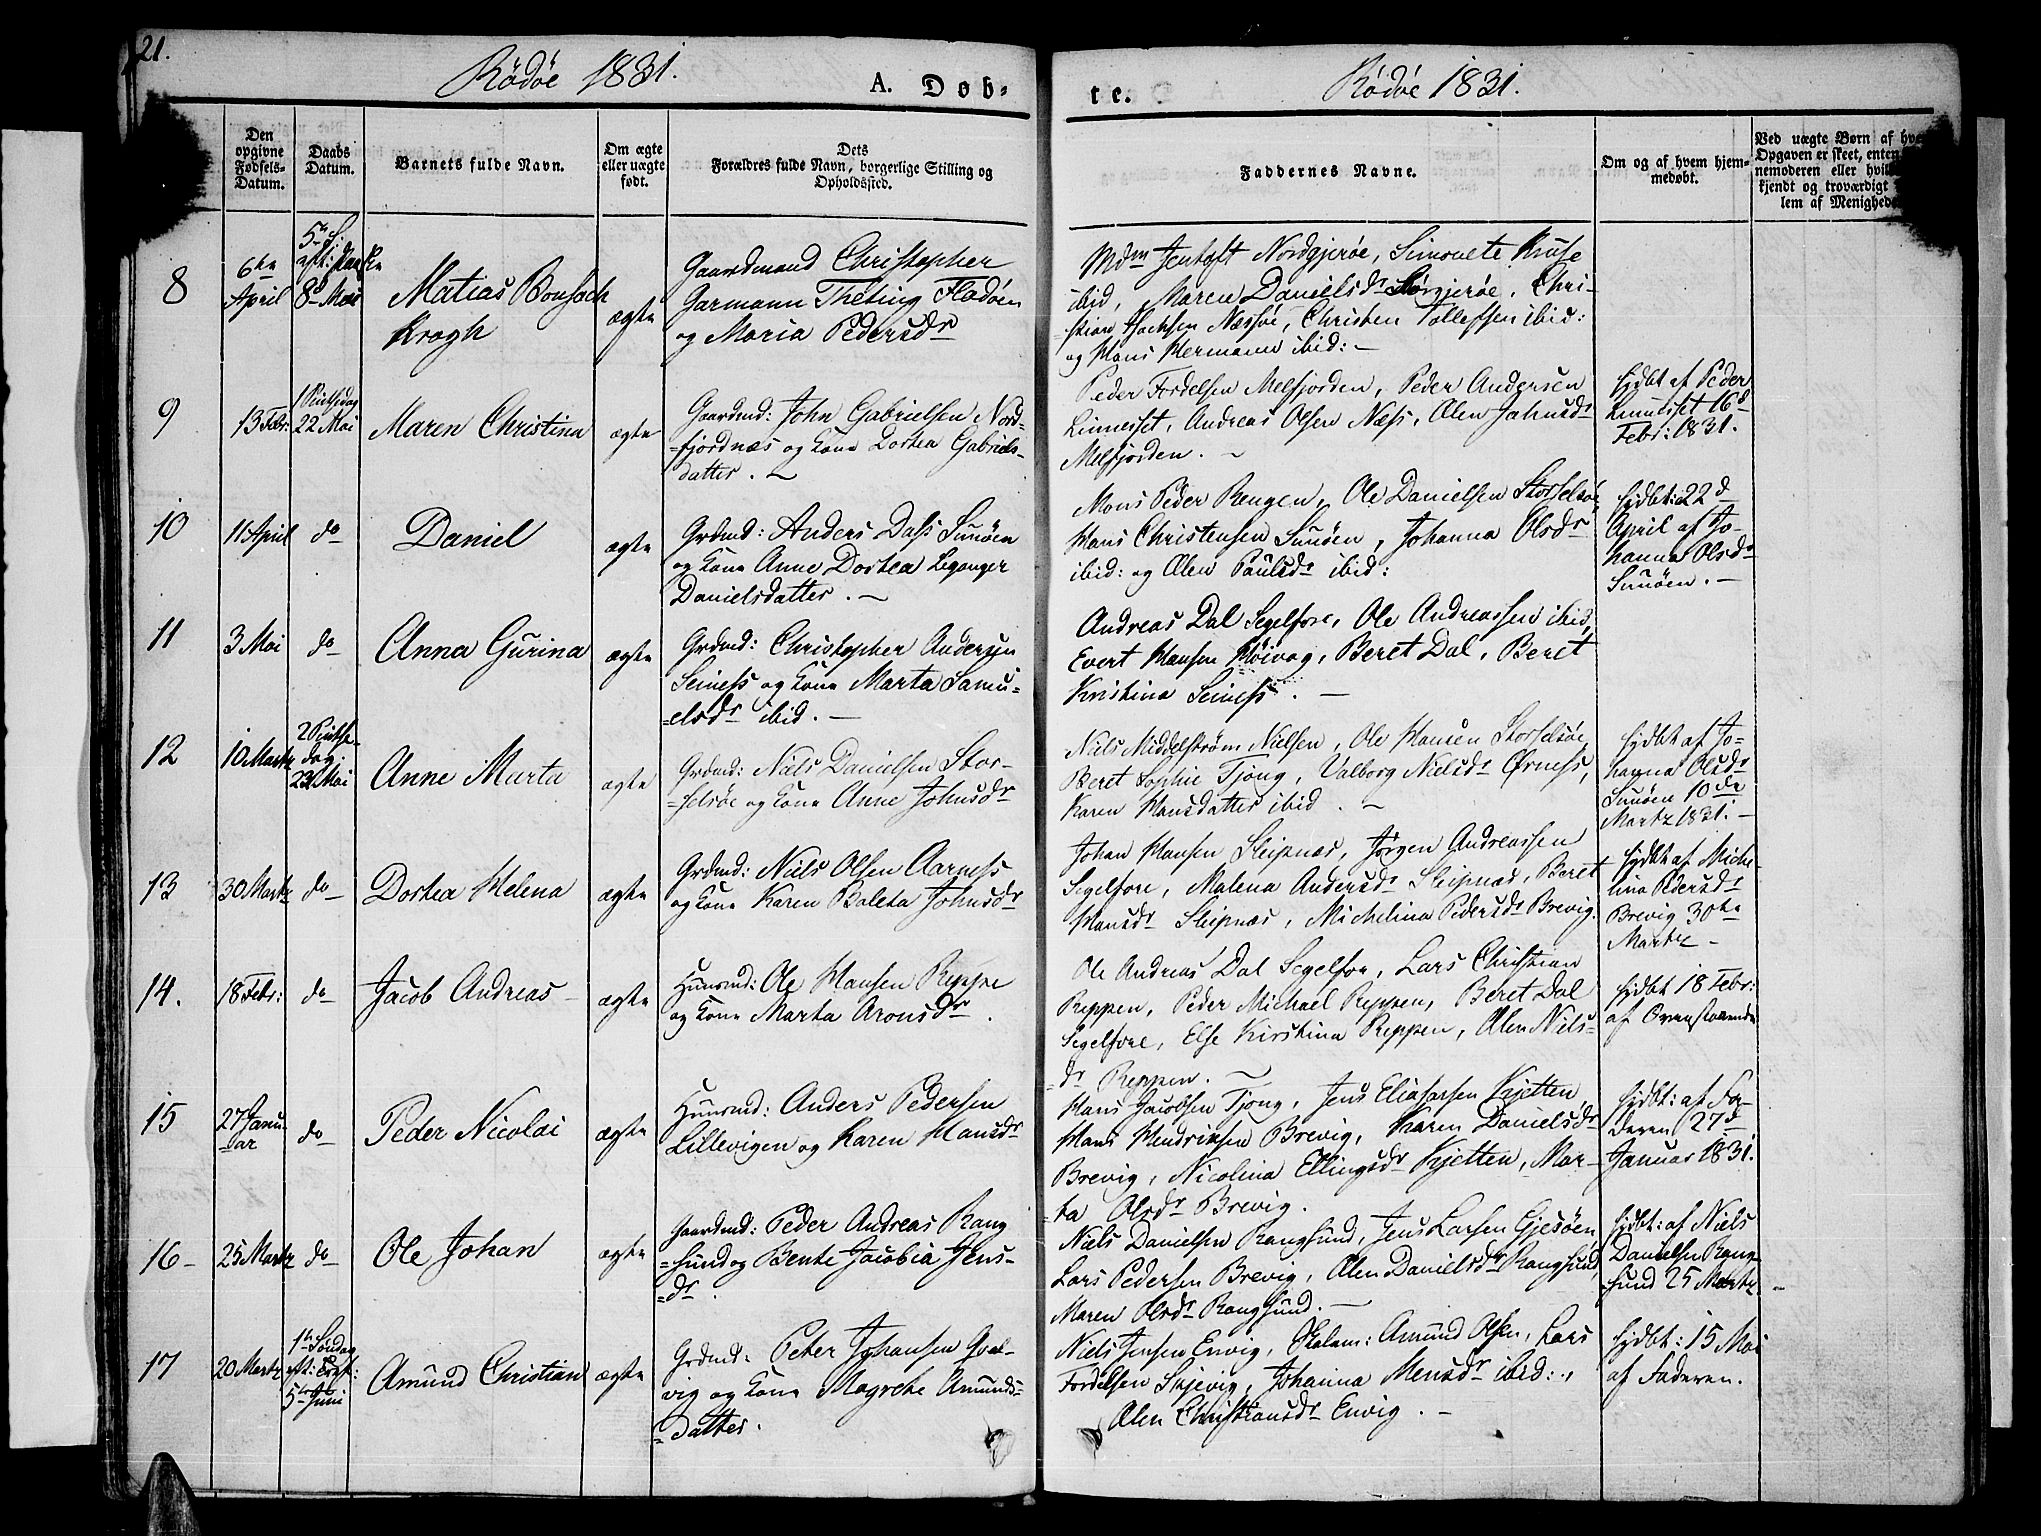 21.
Rödöe 1831.
A. Døb-
te.
Rödöe 1831.
Den opgivne Fødsels-Datum.
Daabs Datum.
Barnets fulde Navn.
Om ægte eller uægte født.
Dets
Forældres fulde Navn, borgerlige Stilling og
Opholdssted.
Faddernes Navne.
Om og af hvem hjem-
medøbt.
Ved uægte Børn af
Opgaven er skeet, enten
nemoderen eller
kjendt og troværdigt
lem af
8
6te
April
5te S:
8de Mai
Matias Bonsach
Krogh
ægte
Gaardmand Christopher
Garmann Theting Flodøen
og Maria Pedersdr
Mdm Jentoft Nordgjerøe, Simonete Kruse
ibid, Maren Danielsdr Sørgjerøe, Chri-
=stian Jachsen Næsøe, Christen Tollefsen ibid:
og Hans Hermann ibid: —
9
13 Febr:
1 Pintsedag
22 Mai
Maren Christina
ægte
Gaardmd: John Gabrielsen Nord-
=fjordnæs og Kone Dortea Gabriels-
datter. —
Peder Fordelsen Melfjorden, Peder Andersen
Linnesset, Andreas Olsen Næss, Olen Johnsdr
Melfjorden. —
hjdbt af Peder
16d
Febr: 1831.
10
11 April
do
Daniel
ægte
Grdmd: Anders Dass Sunöen
og Kone Anne Dortea Leganger
Danielsdatter. —
Mons Peder Rengen, Ole Danielsen Storselsöe
Hans Christensen Sunöen, Johanna Olsdr
ibid: og Olen Paulsdr ibid:
hjdbt: 22d
April af Jo-
hanna Olsdr
Sunöen. —
11
3 Mai
do
Anna Gurina
ægte
Grdmd: Christopher Andersen
Seiness og Kone Marta Samu-
=elsdr ibid. —
Andreas Dal Segelfore, Ole Andreassen ibid,
Evert Hansen Höivog, Beret Dal, Beret
Kristina Seiness. —
12
10 Martz
2 Pintse-
dag
23 Mai
Anne Marta
ægte
Grdmd: Niels Danielsen Stor-
=selsöe og Kone Anne Johnsdr
Niels Middelström Nielsen, Ole Hansen Storselsöe,
Beret Sophie Tjong, Valborg Nielsdr Ørness,
Karen Hansdatter ibid. —
hjdbt af Jo-
hanna Olsdr
Sunöen 10de
Martz 1831. —
13
30 Martz
do
Dortea Helena
ægte
Grdmd: Niels Olsen Aarness
og Kone Karen Boleta Johnsdr
Johan Hansen Sleipnæs, Jörgen Andreassen
Segelfore, Malena Andersdr Sleipnæs, Beret
Hansdr Sleipnæs, Michelina Pedersdr Brevig.
hjdbt af Miche
lina Pedersdr
Brevig 30te
Martz —
14.
18 Febr:
do
Jacob Andreas
ægte
Huusmd: Ole Hansen Reppe
og Kone Marta Aronsdr.
Ole Andreas Dal Segelfor, Lars Christian
Reppen, Peder Michael Reppen, Beret Dal
Segelfore, Else Kirstina Reppen, Olen Niels-
=dr Reppen. —
hjdbt 18 Febr:
af Ovenstaaende
15
27 Janu-
ar
do
Peder Nicolai
ægte
Huusmd: Anders Pedersen
Lillevigen og Karen Hansdr
Hans Jacobsen Tjong, Jens Eliassen Kjetten,
Hans Hendriksen Brevig, Karen Danielsdr
Brevig, Nicolina Ellingsdr Kjetten, Mar-
=ta Olsdr Brevig.
hjdbt: af Fa-
deren 27d
Januar 1831.
16 -
25 Martz
do
Ole Johan
ægte
Gaardmd: Peder Andreas Rang
=sund og Bente Jacobia Jens-
=dr.
Niels Danielsen Rangsund, Jens Larsen Gjesöen,
Lars Pedersen Brevig, Olen Danielsdr Rangsund,
Maren Olsdr Rangsund. —
hjdbt: af Niels
Danielsen Rang-
sund 25 Martz.
17
20 Martz
1te Søndag
eft: Tref:
5te Juni
Amund Christian
ægte
Grdmd: Peter Johansen Qval-
vig og Kone Magrete Amunds-
=datter.
Niels Jensen Envig, Skolem: Amund Olsen, Lars
Fordelsen Skjevig, Johanna Mensdr ibid:,
Olen Christiansdr Envig. —
hjdbt: 15 Mai
af Faderen.